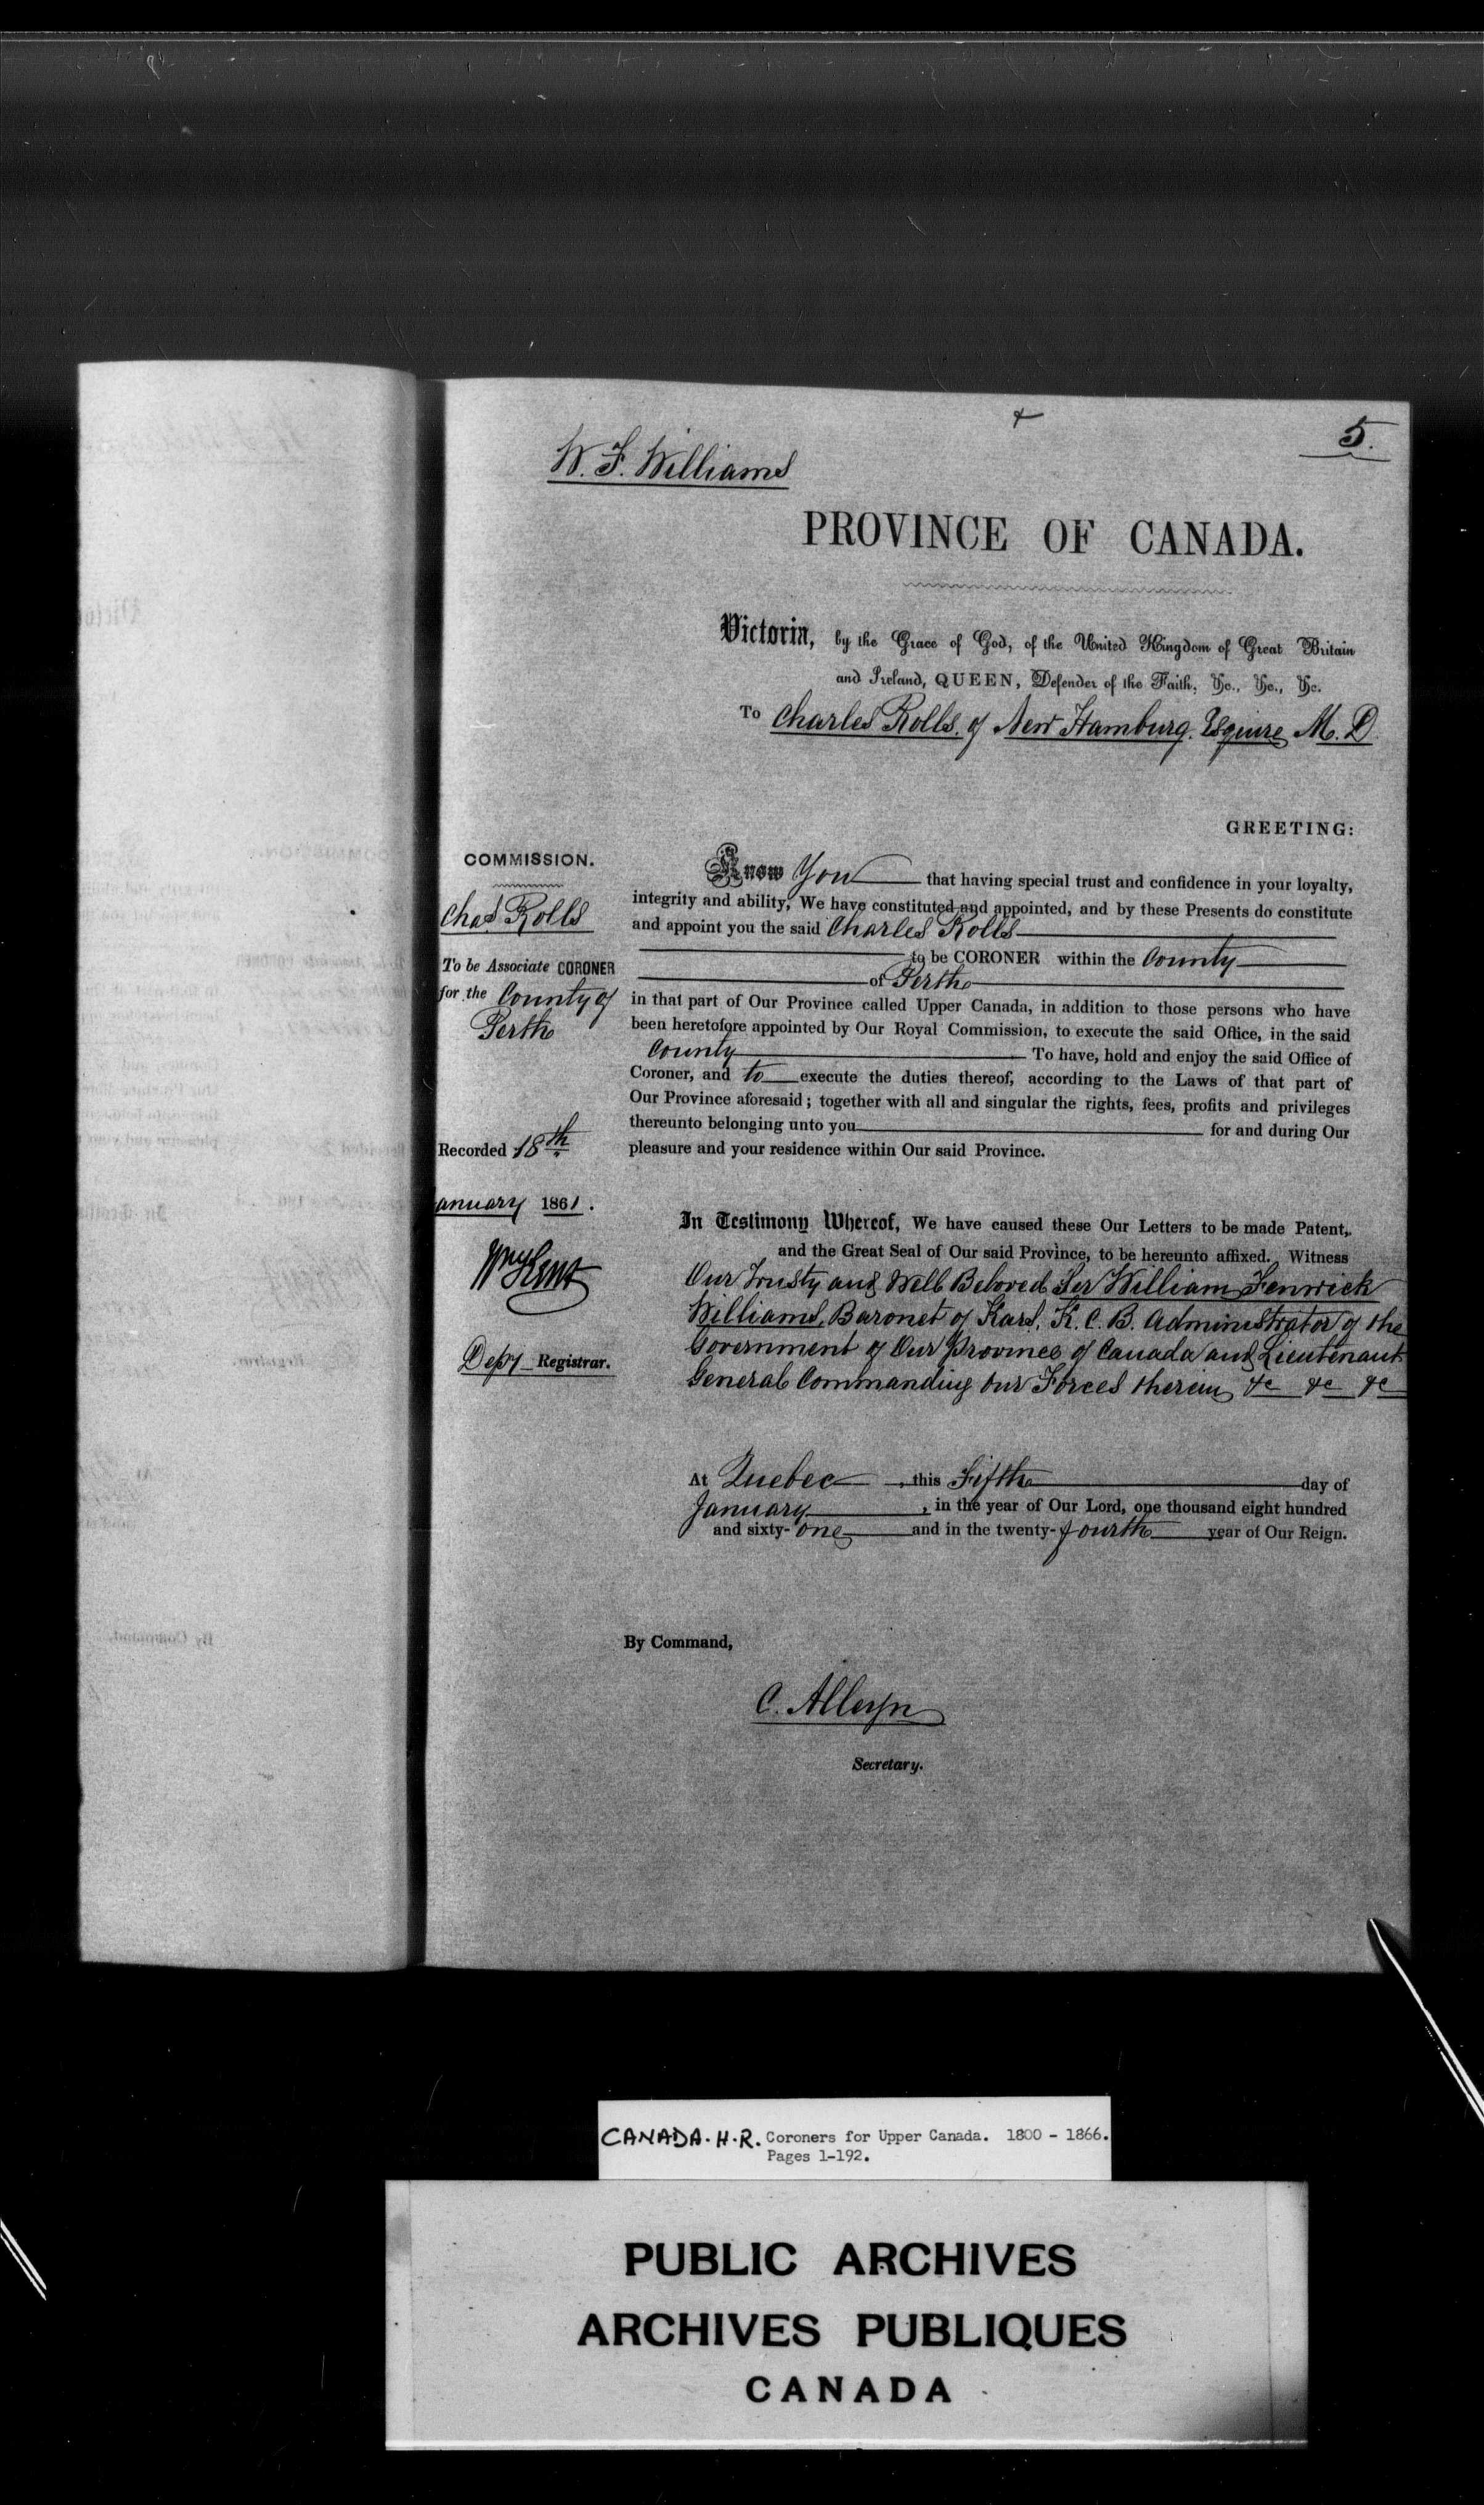 5.
W. F. Williams
PROVINCE OF CANADA.
Victoria, by the Grace of God, of the United Kingdom of Great Britain
and Ireland, QUEEN, Defender of the Faith, &c., &c., &c.
To Charles Rolls. of New Hamburg. Esquire M. D
GREETING:
COMMISSION.
Chas Rolls
To be Associate CORONER
for the County of
Perth
Recorded 18th
January 1861.
Depy Registrar.
Know You that having special trust and confidence in your loyalty,
integrity and ability, We have constituted and appointed, and by these Presents do constitute
and appoint you the said Charles Rolls
to be CORONER within the County
of Perth
in that part of Our Province called Upper Canada, in addition to those persons who have
been heretofore appointed by Our Royal Commission, to execute the said Office, in the said
County To have, hold and enjoy the said Office of
Coroner, and to execute the duties thereof, according to the Laws of that part of
Our Province aforesaid; together with all and singular the rights, fees, profits and privileges
thereunto belonging unto you for and during Our
pleasure and your residence within Our said Province.
In Testimony Whereof, We have caused these Our Letters to be made Patent,
and the Great Seal of Our said Province, to be hereunto affixed. Witness
Our Trusty and Well Beloved Sir William Fenwick
Williams, Baronet of Kars, K. C. B. Administrator of the
Government of Our Province of Canada and Lieutenant
General Commanding Our Forces therein &c &c &c
At Quebec, this Fifth day of
January, in the year of Our Lord, one thousand eight hundred
and sixty-one and in the twenty-fourth year of Our Reign.
By Command,
C. Alleyn
Secretary.
CANADA. H. R. Coroners for Upper Canada. 1800 - 1866.
Pages 1-192.
PUBLIC ARCHIVES
ARCHIVES PUBLIQUES
CANADA